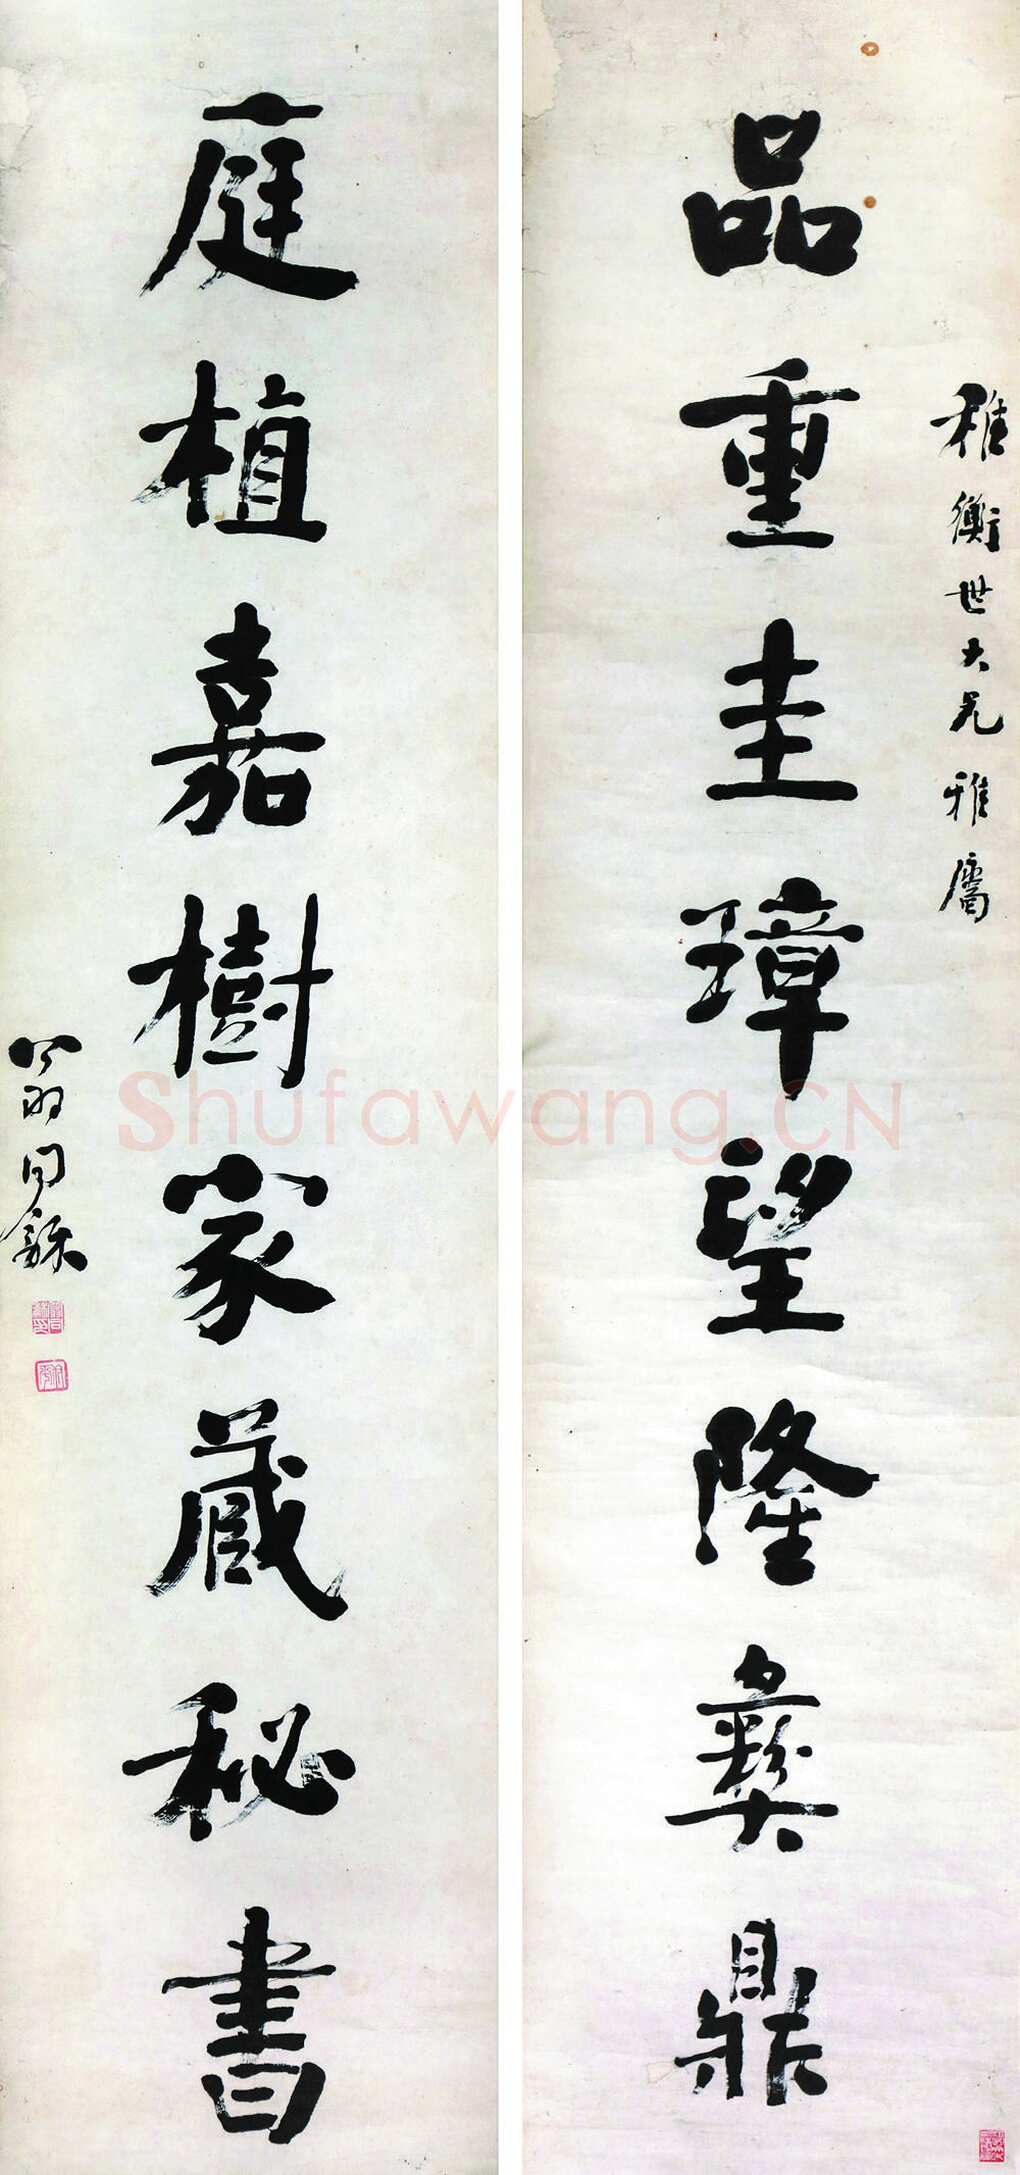 稚衡世大兄雅屬
品重圭璋望隆彝鼎
庭植嘉樹家藏秘書
翁同龢
Shufawang.CN